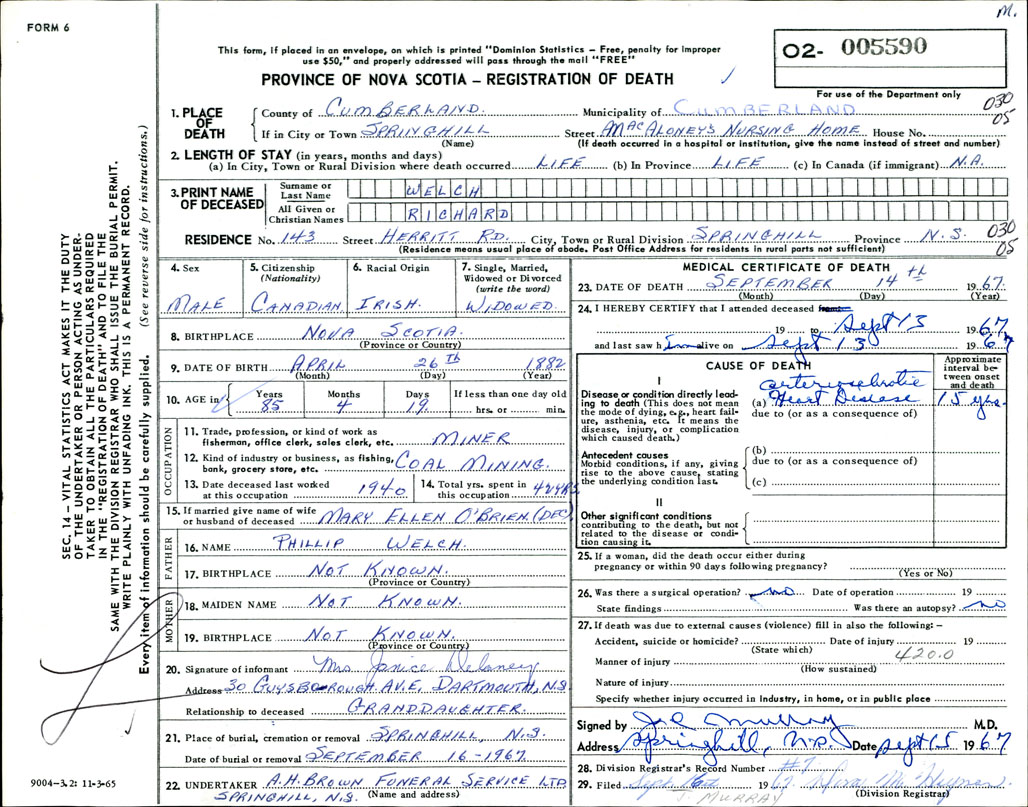 M.
FORM 6
This form, if placed in an envelope, on which is printed "Dominion Statistics – Free, penalty for improper
use $50," and properly addressed will pass through the mail "FREE"
PROVINCE OF NOVA SCOTIA – REGISTRATION OF DEATH
02- 005590
For use of the Department only
030
05
1. PLACE OF DEATH
County of CUMBERLAND. Municipality of CUMBERLAND
If in City or Town SPRINGHILL Street MACALONEY'S NURSING HOME House No.
(Name) (If death occurred in a hospital or institution, give the name instead of street and number)
2. LENGTH OF STAY (in years, months and days)
(a) In City, Town or Rural Division where death occurred LIFE (b) In Province LIFE (c) In Canada (if immigrant) N.A.
3. PRINT NAME OF DECEASED
Surname or Last Name WELCH
All Given or Christian Names RICHARD
RESIDENCE No. 143 Street HERRITT RD. City, Town or Rural Division SPRINGHILL Province N.S. 030
05
(Residence means usual place of abode. Post Office Address for residents in rural parts not sufficient)
4. Sex
MALE
5. Citizenship
(Nationality)
CANADIAN
6. Racial Origin
IRISH.
7. Single, Married,
Widowed or Divorced
(write the word)
WIDOWED.
8. BIRTHPLACE NOVA SCOTIA.
(Province or Country)
9. DATE OF BIRTH APRIL 26TH 1882
(Month) (Day) (Year)
10. AGE in
Years Months Days If less than one day old
85 4 19 hrs. or min.
OCCUPATION
11. Trade, profession, or kind of work as
fisherman, office clerk, sales clerk, etc. MINER
12. Kind of industry or business, as fishing,
bank, grocery store, etc. COAL MINING.
13. Date deceased last worked
at this occupation 1940
14. Total yrs. spent in
this occupation 42 YRS
15. If married give name of wife
or husband of deceased MARY ELLEN O'BRIEN. (DEC)
FATHER
16. NAME PHILLIP WELCH.
17. BIRTHPLACE NOT KNOWN.
(Province or Country)
MOTHER
18. MAIDEN NAME NOT KNOWN.
19. BIRTHPLACE NOT KNOWN.
(Province or Country)
20. Signature of informant Mrs Janice Delaney
Address 30 GUYSBOROUGH AVE, DARTMOUTH, N.S
Relationship to deceased GRANDDAUGHTER.
21. Place of burial, cremation or removal SPRINGHILL, N.S.
Date of burial or removal SEPTEMBER 16-1967
22. UNDERTAKER A.H. BROWN FUNERAL SERVICE LTD
SPRINGHILL, N.S. (Name and address)
MEDICAL CERTIFICATE OF DEATH
23. DATE OF DEATH SEPTEMBER 14th 1967.
(Month) (Day) (Year)
24. I HEREBY CERTIFY that I attended deceased from
19 to Sept 13 1967
and last saw him alive on Sept 13 1967
CAUSE OF DEATH
Approximate interval between onset and death
I
Disease or condition directly leading to death (This does not mean the mode of dying, e.g., heart failure, asthenia, etc. It means the disease, injury, or complication which caused death.)
arteriosclerotic
(a) Heart Disease 15 yrs.
due to (or as a consequence of)
Antecedent causes
Morbid conditions, if any, giving rise to the above cause, stating the underlying condition last.
(b)
due to (or as a consequence of)
(c)
II
Other significant conditions
contributing to the death, but not related to the disease or condition causing it.
25. If a woman, did the death occur either during
pregnancy or within 90 days following pregnancy?
(Yes or No)
26. Was there a surgical operation? no Date of operation 19
State findings Was there an autopsy? no
27. If death was due to external causes (violence) fill in also the following: –
Accident, suicide or homicide? Date of injury 19
(State which) 420.0
Manner of injury
(How sustained)
Nature of injury
Specify whether injury occurred in Industry, in home, or in public place
Signed by Murray M.D.
Address Springhill, N.S. Date Sept 15 1967
28. Division Registrar's Record Number #7
29. Filed Sept 1967
J. MURRAY (Division Registrar)
SEC. 14 – VITAL STATISTICS ACT MAKES IT THE DUTY
OF THE UNDERTAKER OR PERSON ACTING AS UNDER-
TAKER TO OBTAIN ALL THE PARTICULARS REQUIRED
IN THE "REGISTRATION OF DEATH" AND TO FILE THE
SAME WITH THE DIVISION REGISTRAR WHO SHALL ISSUE THE BURIAL PERMIT.
WRITE PLAINLY WITH UNFADING INK. THIS IS A PERMANENT RECORD.
Every item of information should be carefully supplied. (See reverse side for instructions.)
9004-3.2: 11-3-65